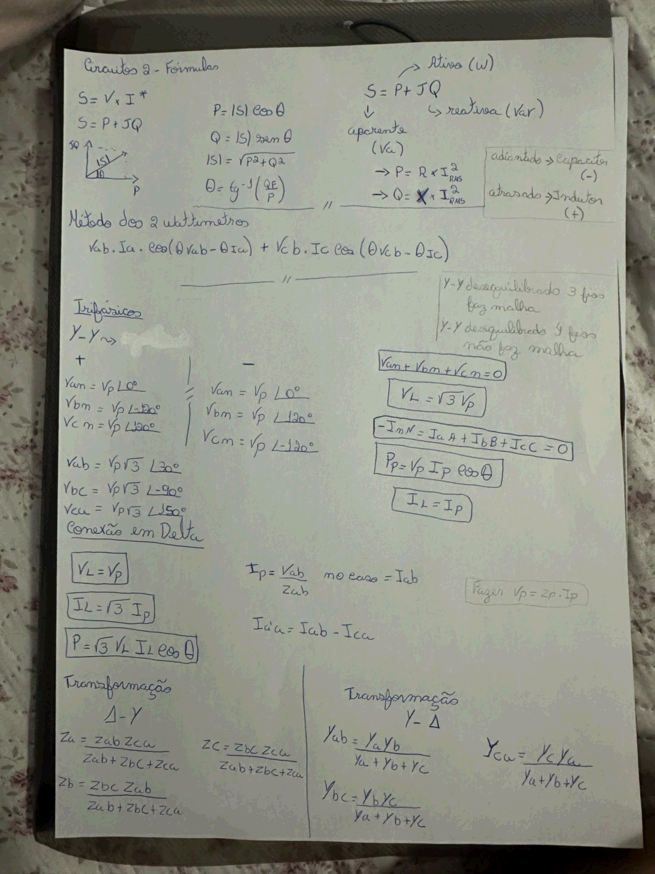 Circuitos 2 - Fórmulas
S = V x I*
S = P + JQ
JQ
|S|
θ
P
P = |S| cos θ
Q = |S| sen θ
|S| = √P²+Q²
θ = tg⁻¹ (QE/P)
Ativa (W)
S = P + JQ
reativa (Var)
aparente
(Va)
→ P = R x I²RMS
→ Q = X x I²RMS
adiantado → Capacitor
(-)
atrasado → Indutor
(+)
Método dos 2 wattímetros
Vab . Ia . cos(θVab - θIa) + Vcb . Ic cos (θVcb - θIc)
Y-Y desequilibrado 3 fios
faz malha
Y-Y desequilibrado 4 fios
não faz malha
Trifásicos
Y-Y
+
Van = Vp∠0°
Vbn = Vp∠-120°
Vcn = Vp∠120°
-
Van = Vp∠0°
Vbn = Vp∠120°
Vcn = Vp∠-120°
Vab = Vp√3 ∠30°
Vbc = Vp√3 ∠-90°
Vca = Vp√3 ∠150°
Van + Vbn + Vcn = 0
VL = √3 Vp
-InN = IaA + IbB + IcC = 0
Pp = Vp Ip cos θ
IL = Ip
Conexão em Delta
VL = Vp
IL = √3 Ip
P = √3 VL IL cos θ
Ip = Vab/Zab no caso = Iab
Ia'a = Iab - Ica
Fazer Vp = Zp . Ip
Transformação
Δ - Y
Za = Zab Zca / Zab + Zbc + Zca
Zc = Zbc Zca / Zab + Zbc + Zca
Zb = Zbc Zab / Zab + Zbc + Zca
Transformação
Y - Δ
Yab = Ya Yb / Ya + Yb + Yc
Yca = Yc Ya / Ya + Yb + Yc
Ybc = Yb Yc / Ya + Yb + Yc